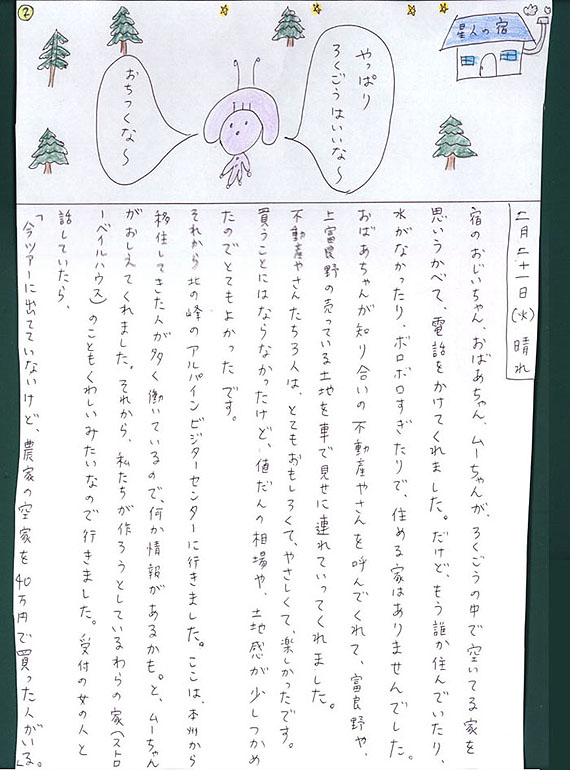 ②
星人の宿
やっぱり
ろくごうはいいな～
おちつくな～
二月二十一日(火) 晴れ
宿のおじいちゃん、おばあちゃん、ムーちゃんが、ろくごうの中で空いてる家を
思いうかべて、電話をかけてくれました。だけど、もう誰か住んでいたり、
水がなかったり、ボロボロすぎたりで、住める家はありませんでした。
おばあちゃんが知り合いの不動産やさんを呼んでくれて、富良野や、
上富良野の売っている土地を車で見せに連れていってくれました。
不動産やさんたち3人は、とてもおもしろくて、やさしくて、楽しかったです。
買うことにはならなかったけど、値だんの相場や、土地感が少しつかめ
たのでとてもよかったです。
それから北の峰のアルパインビジターセンターに行きました。ここは、本州から
移住してきた人が多く働いているので、何か情報があるかも。と、ムーちゃん
がおしえてくれました。それから、私たちが作ろうとしているわらの家(ストロ
ーベイルハウス)のこともくわしいみたいなので行きました。受付の女の人と
話していたら、
「今ツアーに出てていないけど、農家の空家を40万円で買った人がいる。」